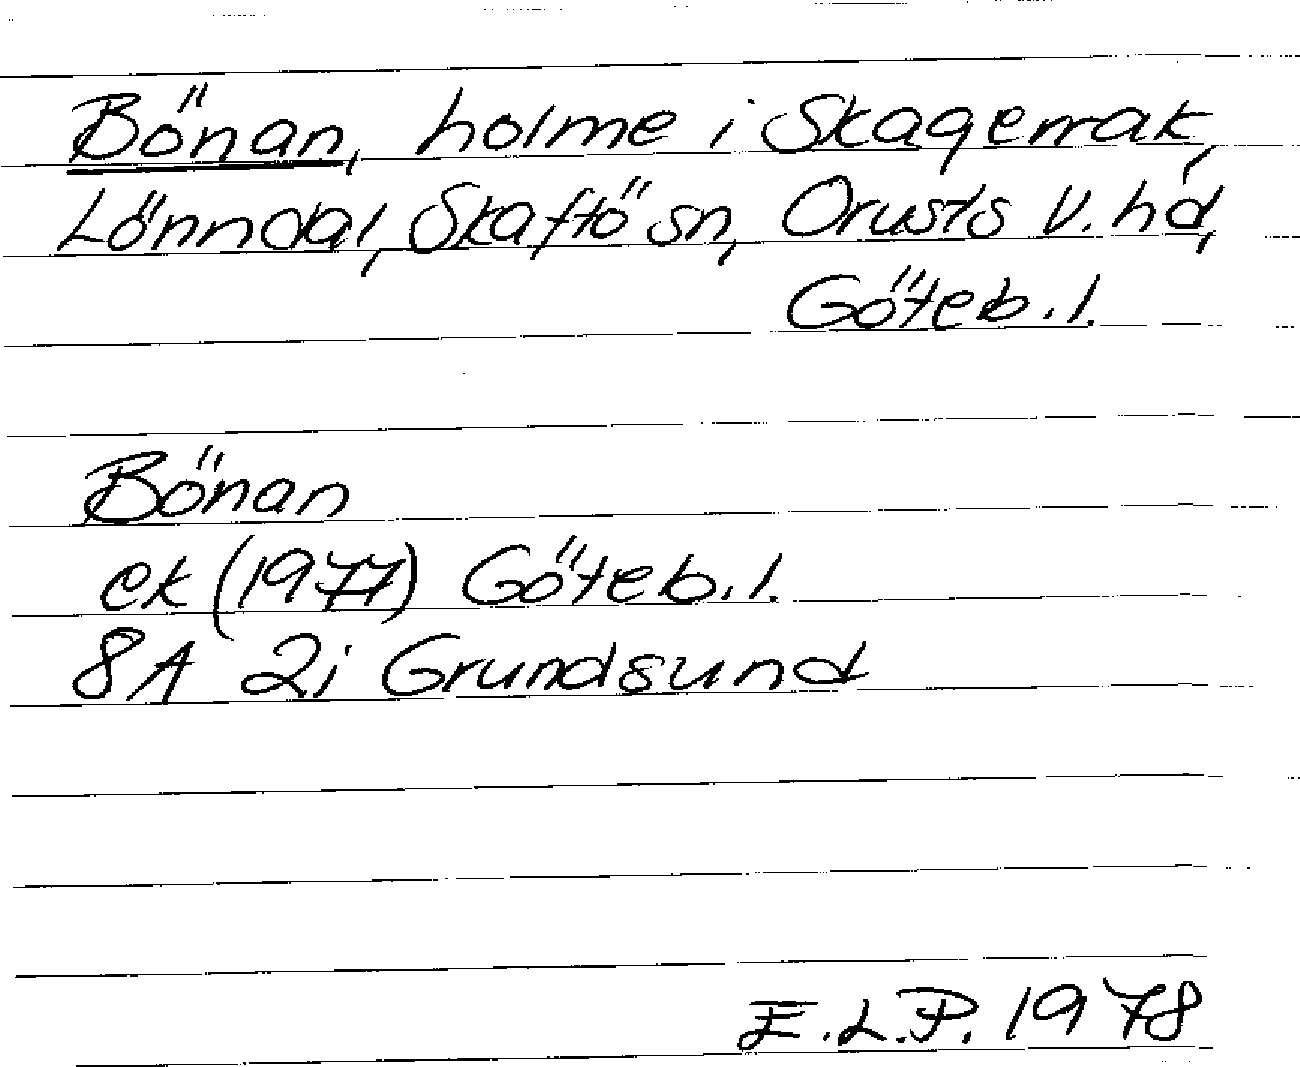 Bönan, holme i Skagerrak,
Lönndal, Skaftö sn, Orusts v. hd,
Göteb. l.
Bönan
ek (1977) Göteb. l.
8A 2i Grundsund
E.L.P. 1978